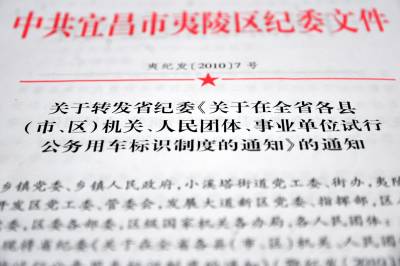 中共宜昌市夷陵区纪委文件
夷纪发〔2010〕7号
关于转发省纪委《关于在全省各县
（市、区）机关、人民团体、事业单位试行
公务用车标识制度的通知》的通知
乡镇党委、乡镇人民政府，小溪塔街道党工委、街办，夷陵
开发区党工委、管委会，发展大道新区党委、指挥部，区
委，区委各部委，区级国家机关各办局，各人民团体：
现将省纪委《关于在全省各县（市、区）机关、人民团